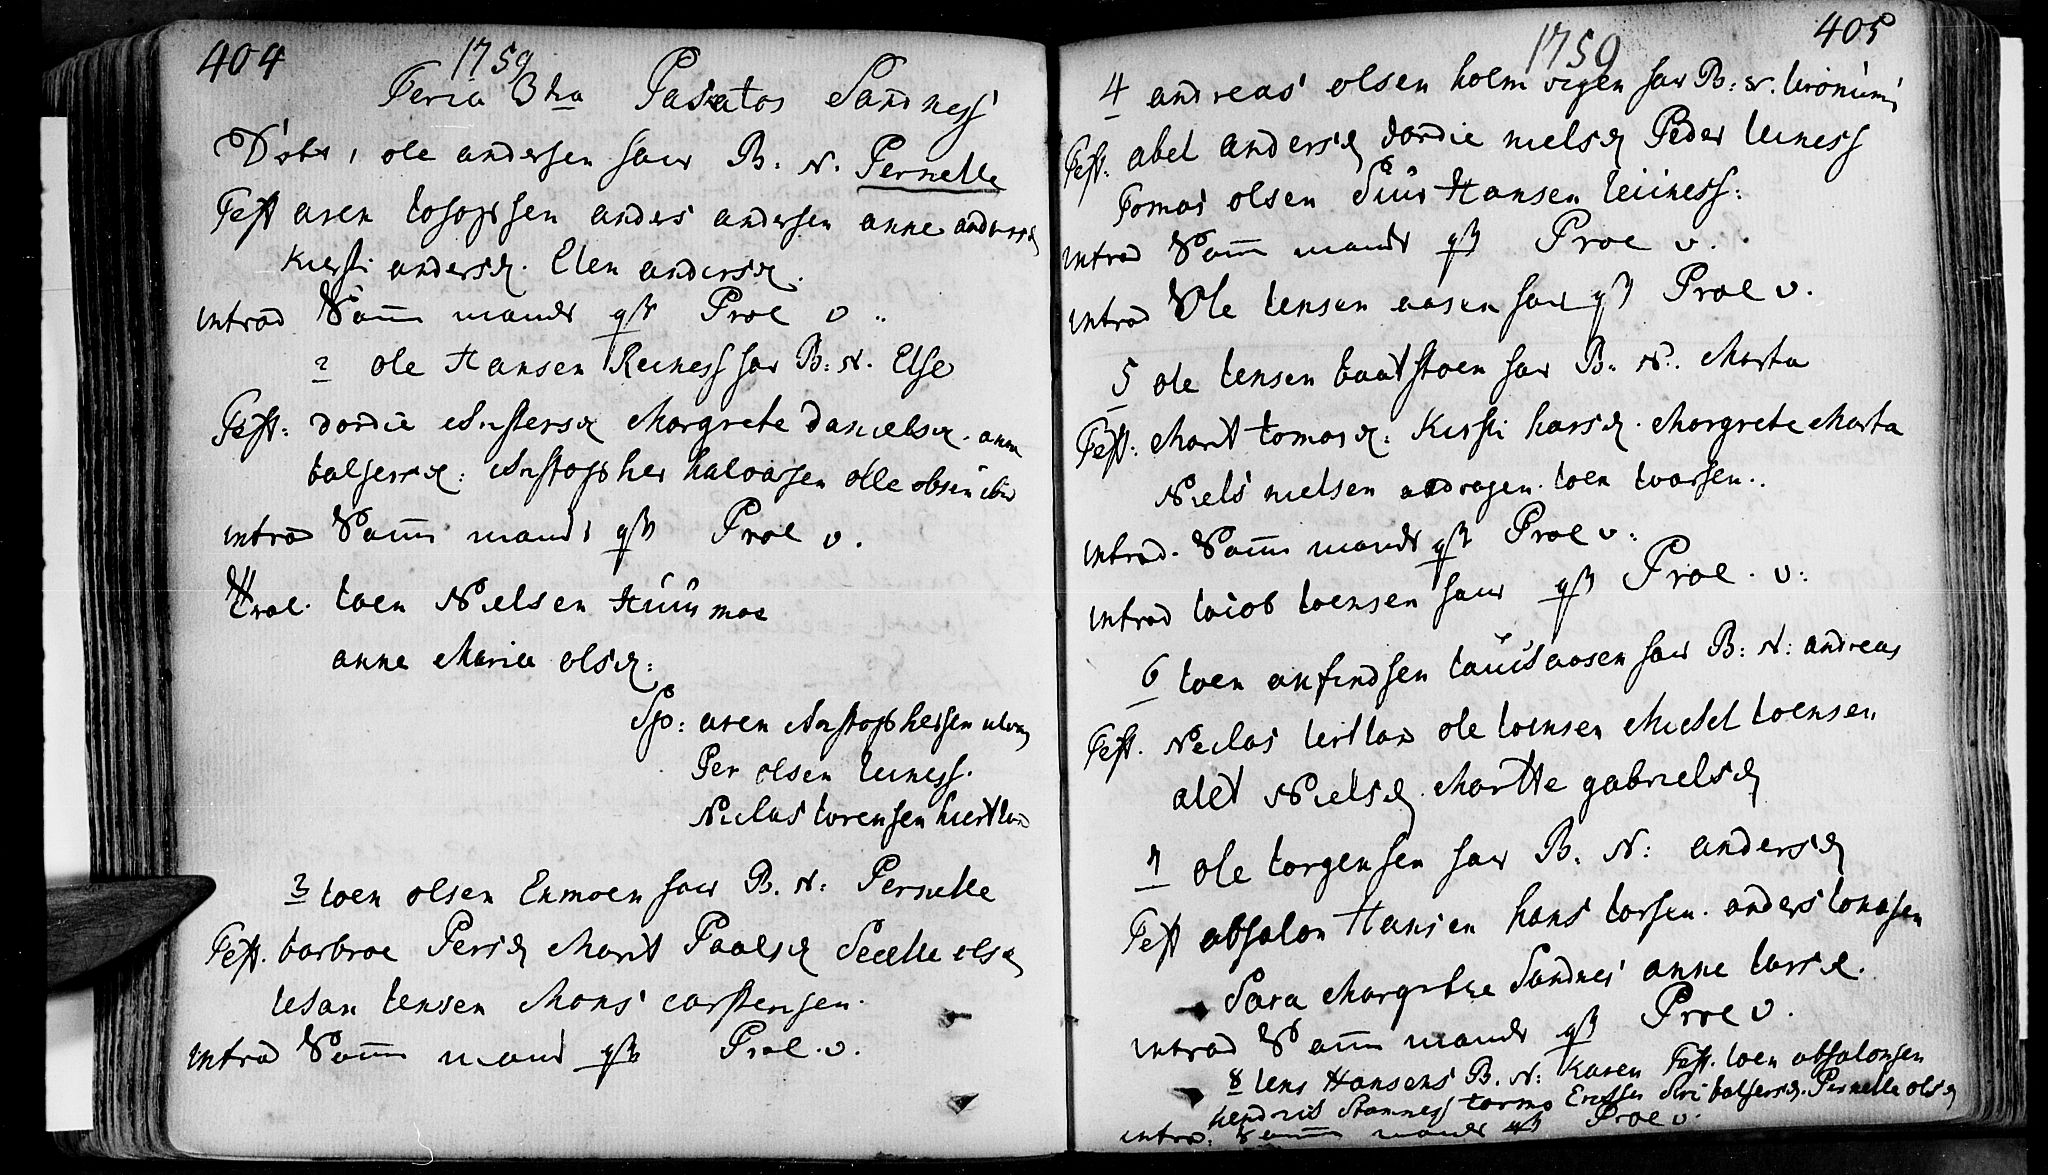 404
1759
Feria 3tia Pascatos Sandness
Dobt 1 ole andersen havr B. N. Pernelle
Test aren andes andersen anne andersd
Kiersti andersd. Elen andersd.
introd Samm mands qv Prae v.
2 ole Hansen Leines hav B: N. Else
Test: dordie Margrete Danielsd. anne
balzersd: Christopher halvarsen olle olsen
introd Samm mands qv Prae v.
Trol. Joen Nielsen
anne Maria olsd:
Sp: aren Christophersen
Per olsen Leiness.
Niclas Lorensen hiertlan
3 Joen olsen Enmoen havr B. N: Pernelle
Test. barbroe Persd Marit Paalsd Sedelle olsd
Jens Jensen Mons carstensen.
introd Samm mand qv Prae. v.
405
1759
4 andreas olsen holm vegen hav B: N.
Test: abel andersd dordie nielsd Peder Leiness
Tomas olsen Siur Hansen Leiness:
introd Samm mands qv Prae v.
introd Ole Jensen aasen havr qv Prae v.
5 ole Jensen baatstoen hav B. N. Marta
Test: Marit tomasd: Kirsti larsd. Margrete Marta
Niels nielsen Joen Ivarsen..
introd. Samm mands qv Prae v:
introd Jacob Joensen havr qv Prae. v:
6 Joen anfindsen hav B: N: andreas
Test. Niclas ole Joensen Michel Joensen
alet Nielsd. Martte gabrielsd
7 ole Jorgensen havr B. N: andersd
Test absalon Hansen hans Larsen. anders Jonasen
Sara Margrethe Sandnes anne Larsd.
introd Samm mands qv Prae v.
8 Jens Hansens B. N: Karen Test. Joen absalonsen
hendrich Stamness Siri balzersd. Pernelle olsd
introd: Samm mands qv Prae v.